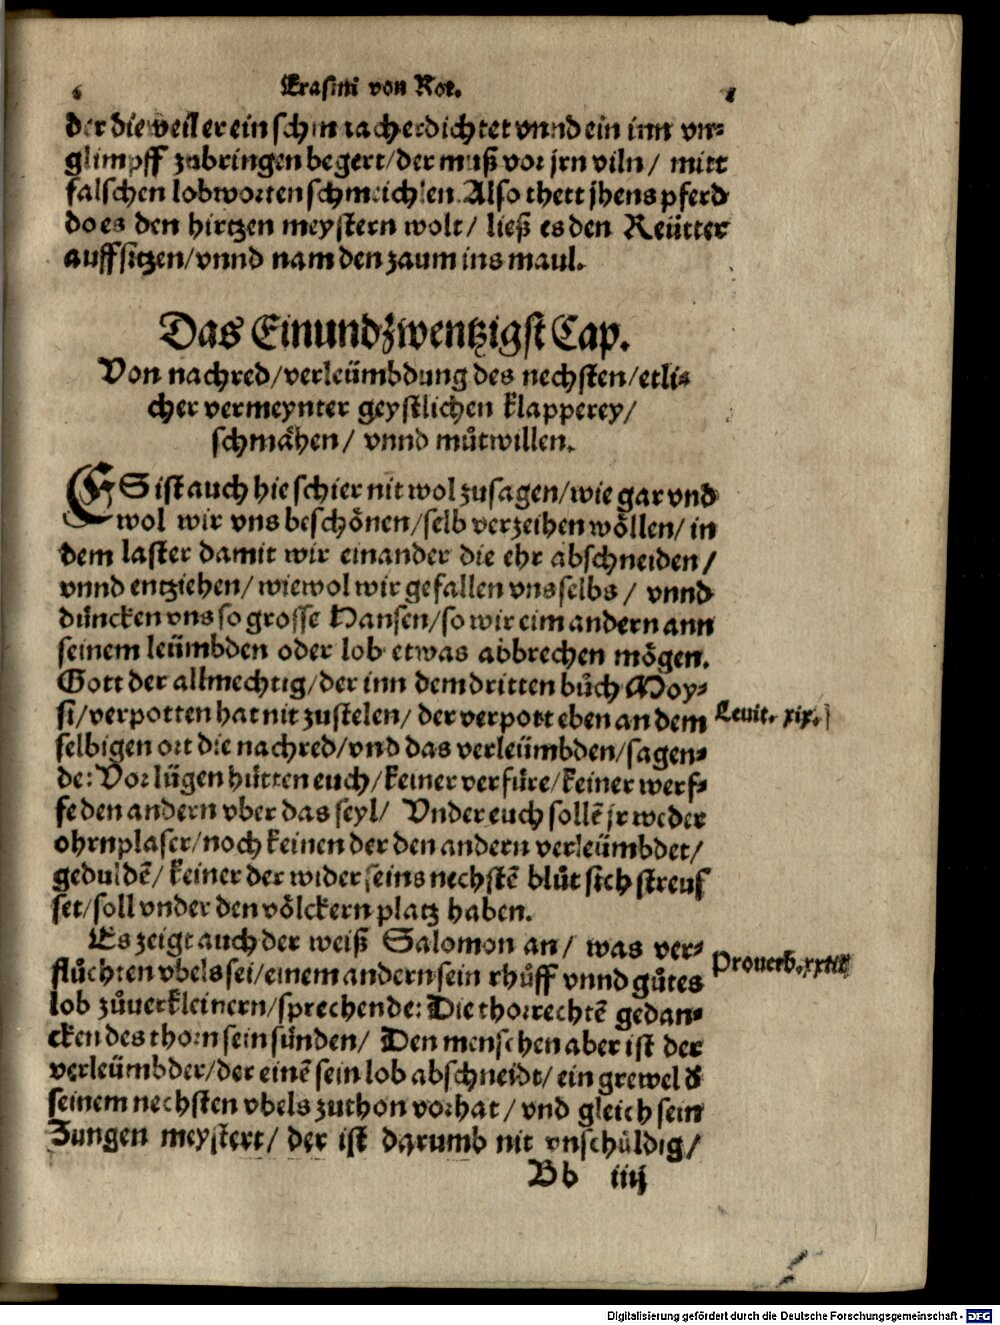 Erasmi von Rot.
der dieweil er ein schmracherdichtet vnnd ein inn vn⸗
glimpff zubringen begert/ der muß vor jrn viln/ mitt
falschen lobworten schmeichlen. Also thett jhens pferd
do es den hirtzen meystern wolt/ ließ es den Reütter
auffsitzen/ vnnd nam den zaum ins maul.
Das Einundzwentzigst Cap.
Von nachred/ verleümbdung des nechsten/ etli⸗
cher vermeynter geystlichen klapperey/
schmåhen/ vnnd můtwillen.
ES ist auch hie schier nit wol zusagen/ wie gar vnd
wol wir vns beschönen/ selb verzeihen wöllen/ in
dem laster damit wir einander die ehr abschneiden/
vnnd entziehen/ wiewol wir gefallen vns selbs / vnnd
duncken vns so grosse Hansen/ so wir eim andern ann
seinem leümbden oder lob etwas abbrechen mögen.
Gott der allmechtig/ der inn dem dritten bůch Moy⸗
si/ verpotten hat nit zustelen/ der verpott eben an dem
Leuit. xix.
selbigen ort die nachred/ vnd das verleümbden/ sagen⸗
de: Vor lügen hütten euch/ keiner verfüre/ keiner werf⸗
fe den andern vber das seyl/ Vnder euch sollē jr weder
ohrnplaser/ noch keinen der den andern verleümbdet/
geduldē/ keiner der wider seins nechstē blůt sich streuf
set/ soll vnder den völckern platz haben.
Es zeigt auch der weiß Salomon an/ was ver⸗
flůchten vbels sei/ einem andern sein rhůff vnnd gůtes
Prouerb. xxiiii
lob zůuerkleinern/ sprechende: Die thorrechtē gedan⸗
cken des thorn sein sünden/ Den menschen aber ist der
verleümbder/ der einē sein lob abschneidt/ ein grewel đ
seinem nechsten vbels zuthon vorhat/ vnd gleich sein
Zungen meystert/ der ist darumb nit vnschuldig/
Bb iiij
Digitalisierung gefördert durch die Deutsche Forschungsgemeinschaft - DFG